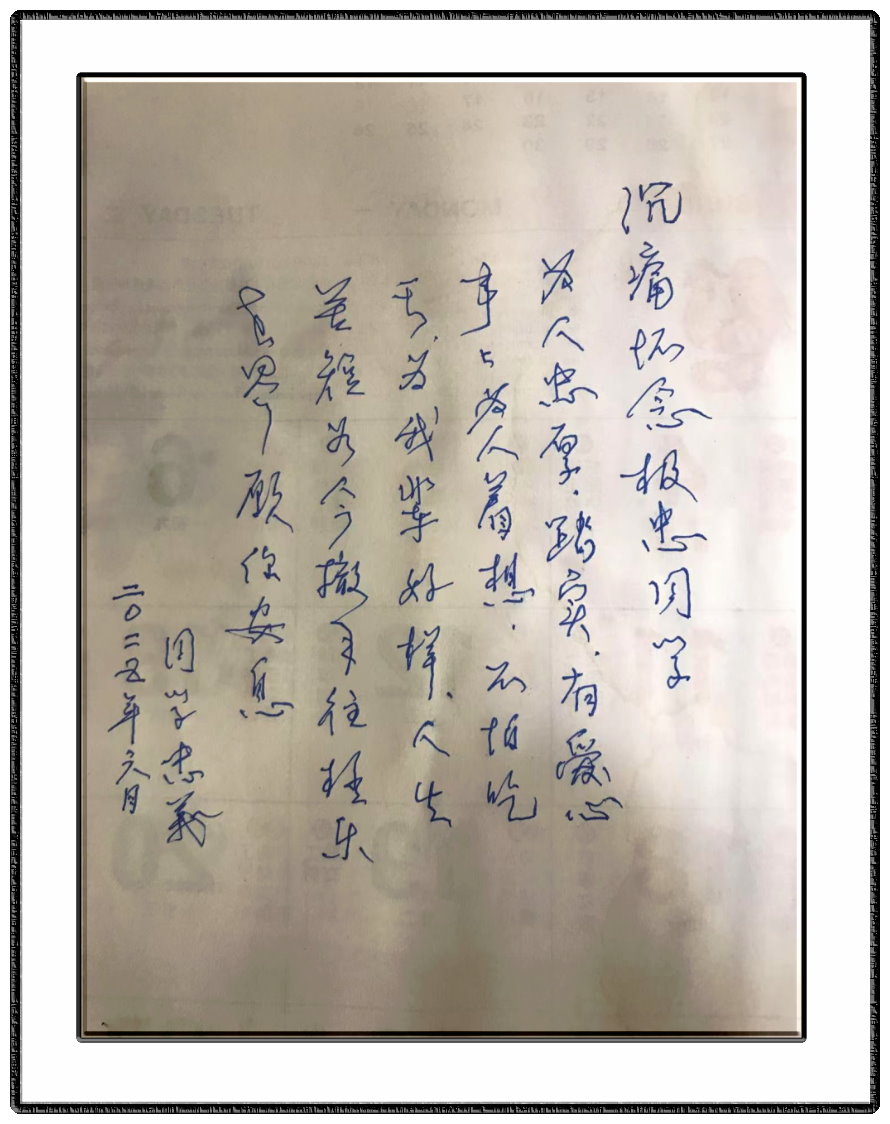 沉痛怀念极忠同学
为人忠厚.踏实.有爱心
事々为人着想.不怕吃
亏.为我辈好样.人生
苦短为今撤手往极乐
世界了願你安息
同学忠义
二〇二五年六月
MONDAY 一
TUESDAY 二